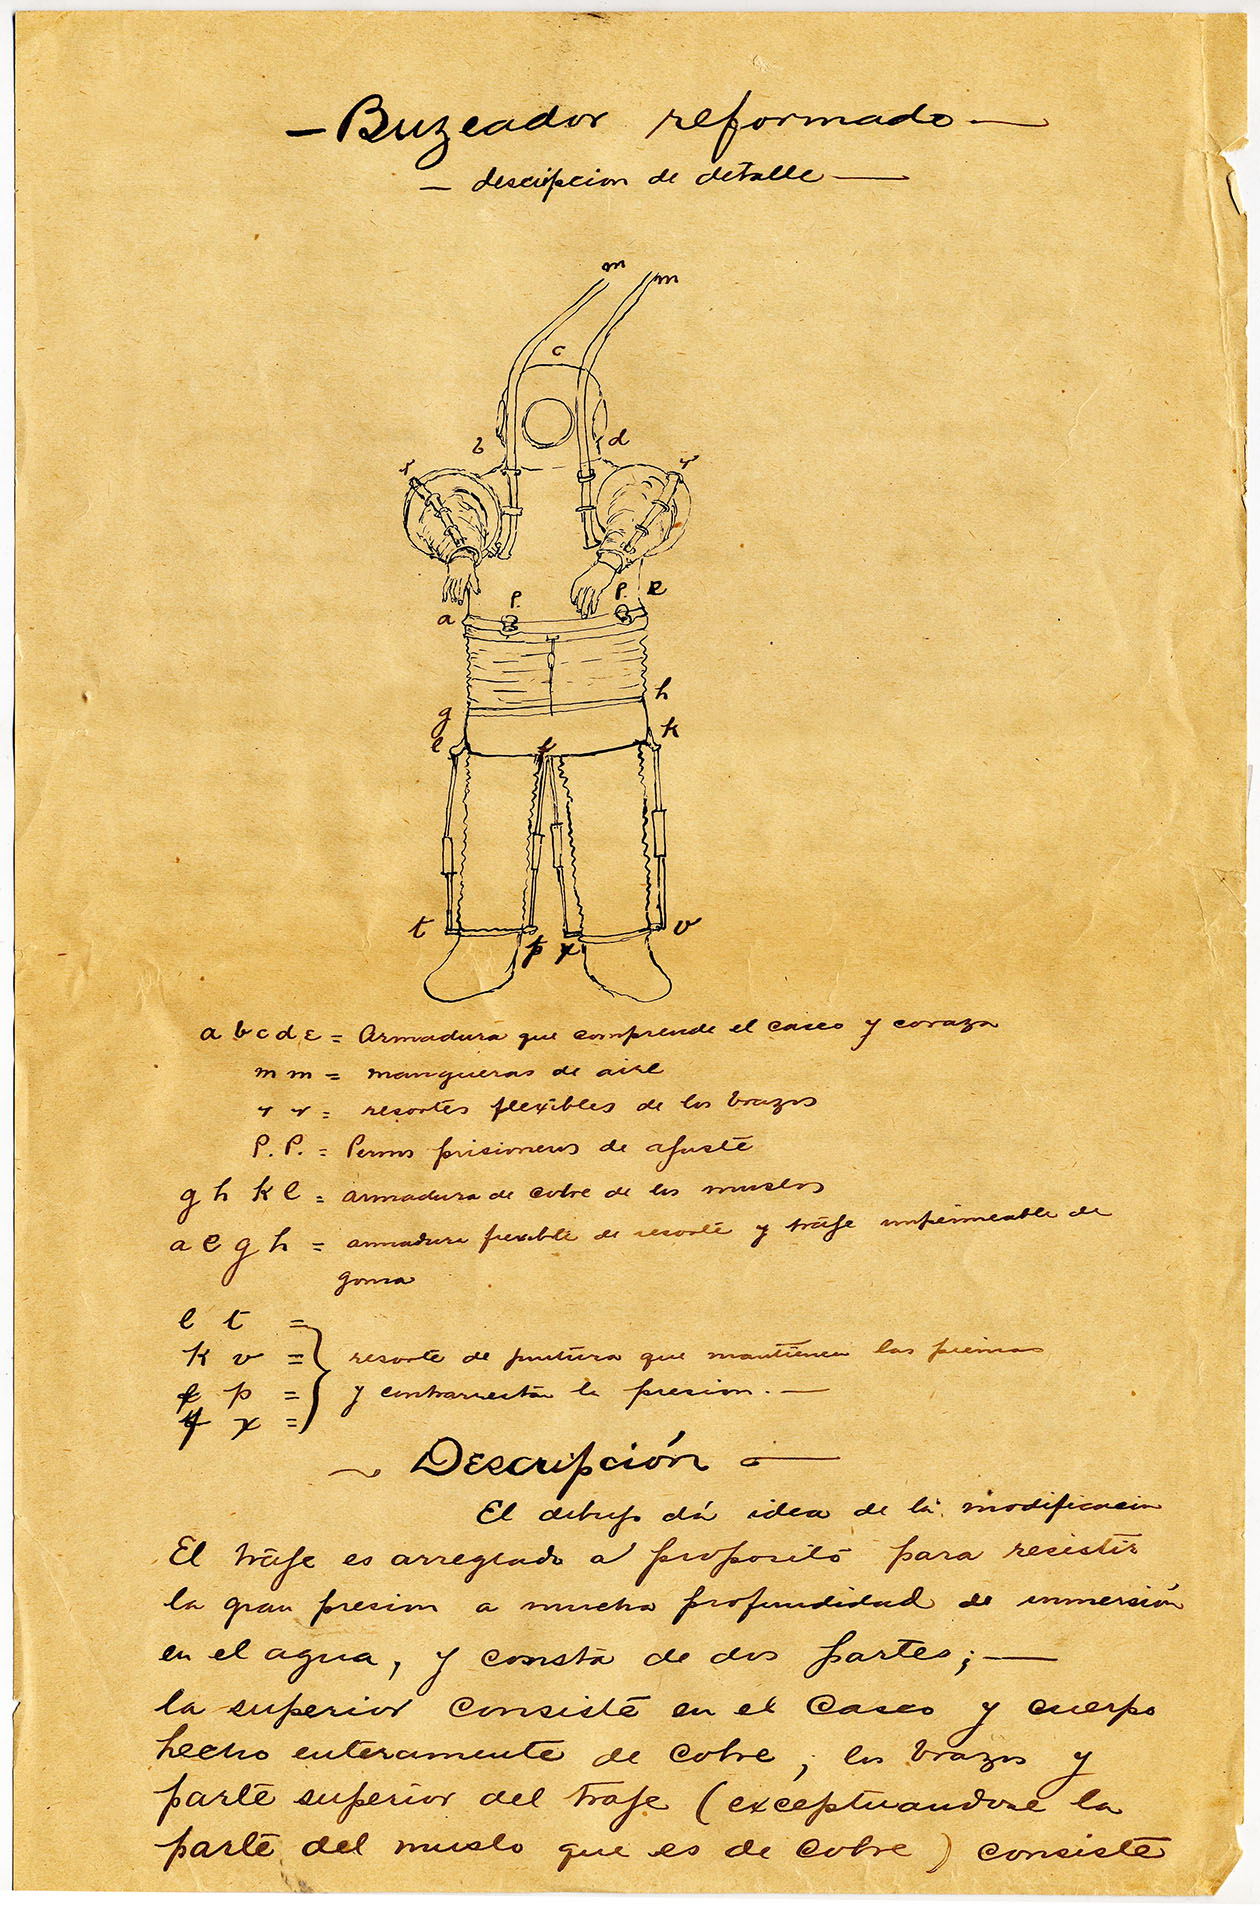 — Buzeador reformado —
— descripcion de detalle —
m
m
c
b
d
r
r
P.
P.
e
a
h
g
k
l
f
t
p
x
v
a b c d e = Armadura que comprende el casco y coraza
m m = mangueras de aire
r r = resortes flexibles de los brazos
P. P. = Pernos prisioneros de ajuste
g h k l = armadura de cobre de los muslos
a e g h = armadura flexible de resorte y traje impermeable de
goma
l t =
k v = resorte de puntura que mantienen las piernas
f p = y contrarresta la presion. —
f x =
Descripción —
El dibujo dá idea de la modificacion
El traje es arreglado a proposito para resistir
la gran presion a mucha profundidad de inmersión
en el agua, y consta de dos partes; —
la superior consiste en el casco y cuerpo
hecho enteramente de cobre, los brazos y
parte superior del traje (exceptuandose la
parte del muslo que es de cobre) consiste